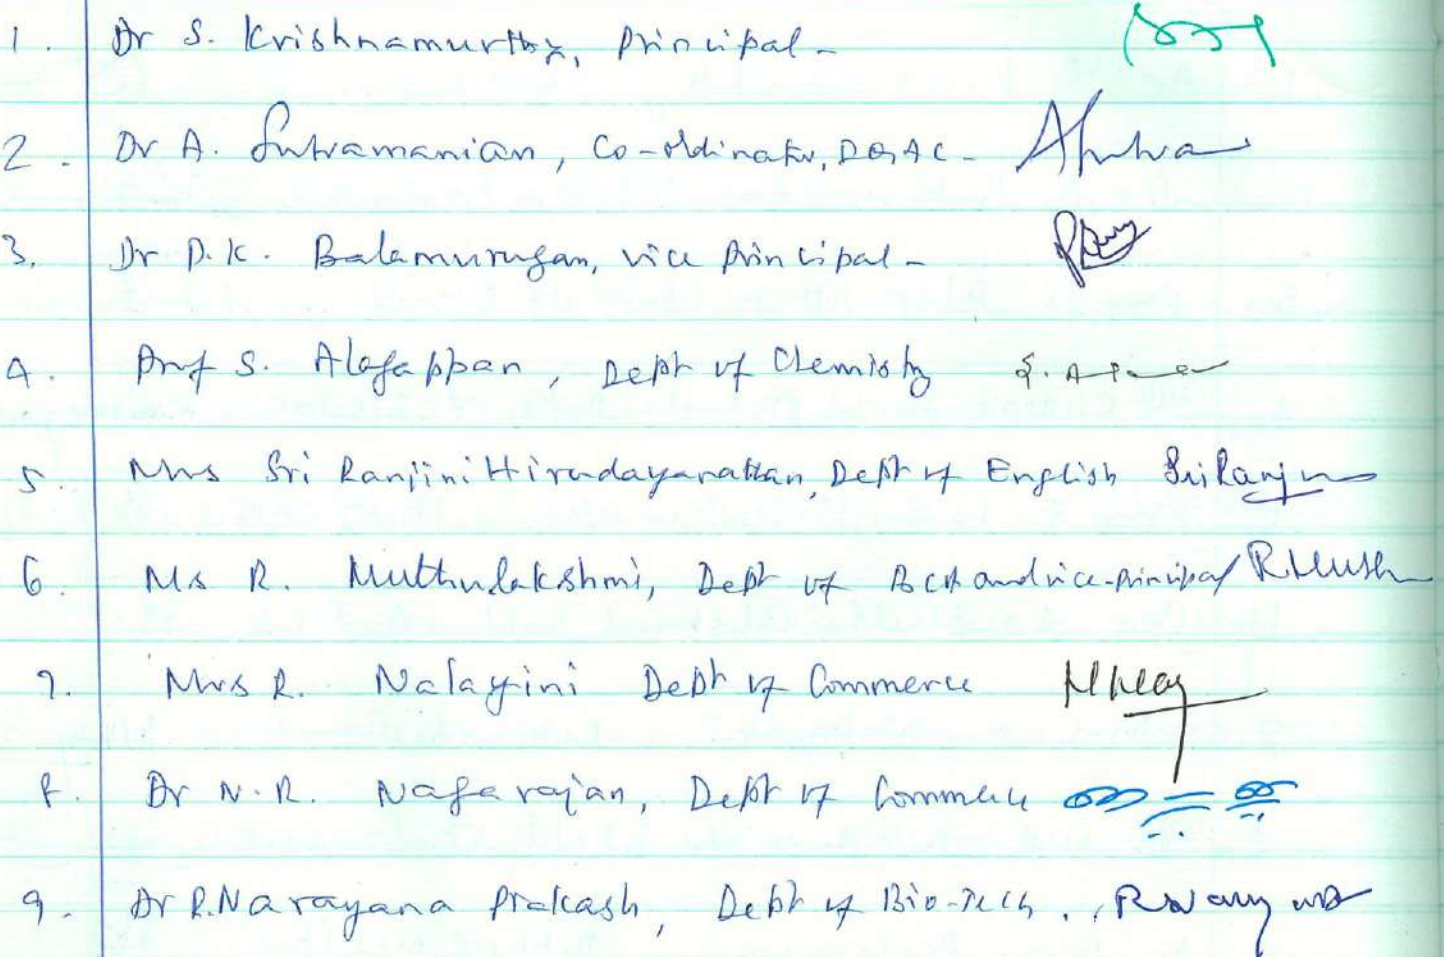 1. Dr S. Krishnamurthy, Principal -
2. Dr A. Subramanian, Co-ordinator, IQAC - ASubra
3. Dr P.K. Balamurugan, Vice Principal -
4. Prof S. Alagappan, Dept of Chemistry
5. Mrs Sri Ranjini Hirudayanathan, Dept of English SriRanjini
6. Ms R. Muthulakshmi, Dept of BCA and vice-Principal
7. Mrs R. Nalayini Dept of Commerce
8. Dr N.R. Nagarajan, Dept of Commerce
9. Dr R. Narayana Prakash, Dept of Bio-Tech.